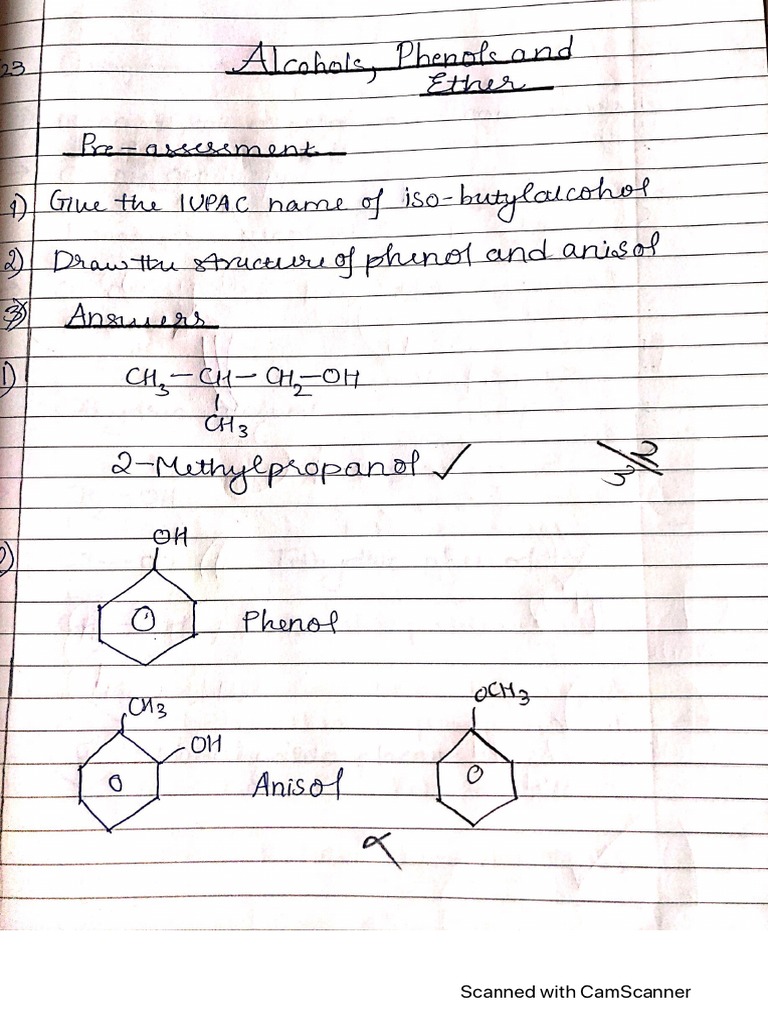 23
Alcohols, Phenols and
Ether
Pre-assessment
1) Give the IUPAC name of iso-butylalcohol
2) Draw the structure of phenol and anisol
3) Answers
1) CH3-CH-CH2-OH
CH3
2-Methylpropanol ✓
2
3
OH
Phenol
CH3
OH
Anisol
OCH3
Scanned with CamScanner